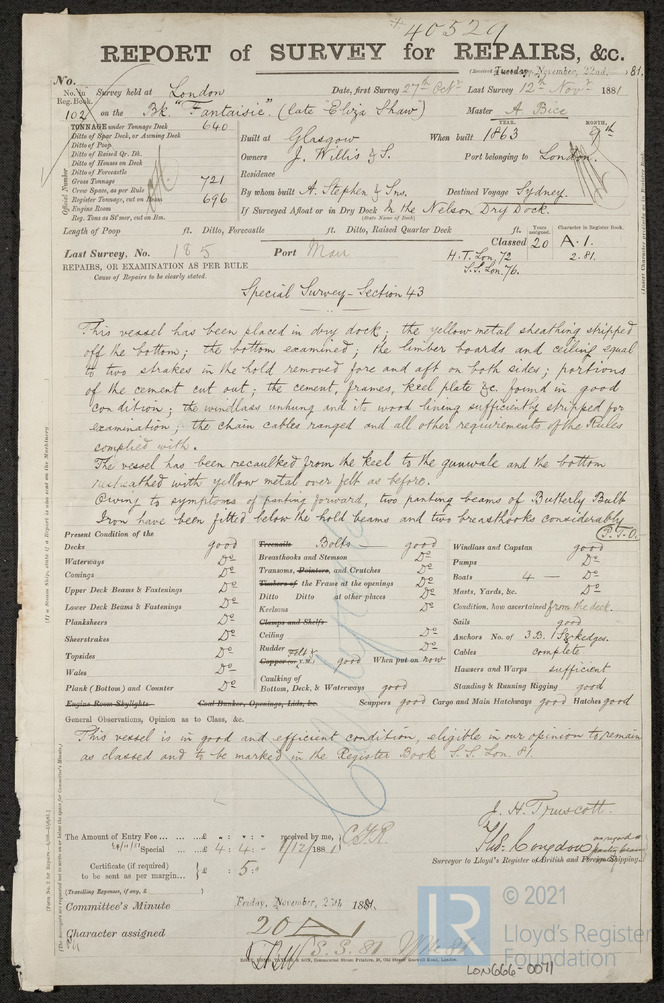 40529
REPORT of SURVEY for REPAIRS, &c.
(Received Tuesday, November, 22nd, 1881.
No.
No. in Reg. Book. Survey held at London Date, first Survey 27th Octr Last Survey 12th Novr 1881
102 on the Bk. "Fantaisie" (late Eliza Shaw) Master A. Bice
TONNAGE under Tonnage Deck 640
Ditto of Spar Deck, or Awning Deck
Ditto of Poop
Ditto of Raised Qr. Dk.
Ditto of Houses on Deck
Ditto of Forecastle
Gross Tonnage 721
Crew Space, as per Rule
Register Tonnage, cut on Beam 696
Engine Room
Reg. Tons as St'mer, cut on Bm.
Official Number
Built at Glasgow When built YEAR. 1863 MONTH. 9th
Owners J. Willis & S. Port belonging to London.
Residence
By whom built A. Stephen & Sns. Destined Voyage Sydney.
If Surveyed Afloat or in Dry Dock In the Nelson Dry Dock.
(State Name of Dock)
Length of Poop ft. Ditto, Forecastle ft. Ditto, Raised Quarter Deck ft.
Last Survey, No. 185 Port
Classed Years assigned. 20 Character in Register Book. A.1.
2.81.
H.T. Lon. 72
S.S. Lon. 76.
REPAIRS, OR EXAMINATION AS PER RULE
Cause of Repairs to be clearly stated.
Special Survey - Section 43
This vessel has been placed in dry dock; the yellow metal sheathing stripped
off the bottom; the bottom examined; the limber boards and ceiling equal
to two strakes in the hold removed fore and aft on both sides; portions
of the cement cut out; the cement, frames, keel plate &c. found in good
condition; the windlass unhung and its wood lining sufficiently stripped for
examination; the chain cables ranged and all other requirements of the Rules
complied with.
The vessel has been recaulked from the keel to the gunwale and the bottom
resheathed with yellow metal over felt as before.
Owing to symptoms of panting forward, two panting beams of Butterly Bulb
Iron have been fitted below the hold beams and two breasthooks considerably
P.T.O.
Present Condition of the
Decks good
Waterways Do
Comings Do
Upper Deck Beams & Fastenings Do
Lower Deck Beams & Fastenings Do
Planksheers Do
Sheerstrakes Do
Topsides Do
Wales Do
Plank (Bottom) and Counter Do
Engine Room Skylights
Treenails Bolts good
Breasthooks and Stemson Do
Transoms, Pointers, and Crutches Do
Timbers of the Frame at the openings Do
Ditto Ditto at other places Do
Keelsons Do
Clamps and Shelfs
Ceiling Do
Rudder Do
Felt & Copper or Y.M. good When put on now
Caulking of Bottom, Deck, & Waterways good
Coal Bunker, Openings, Lids, &c.
Windlass and Capstan good
Pumps Do
Boats 4 Do
Masts, Yards, &c. Do
Condition, how ascertained from the deck.
Sails good
Anchors No. of 3 B. 1 S. & kedges.
Cables complete
Hawsers and Warps sufficient
Standing & Running Rigging good
Scuppers good Cargo and Main Hatchways good Hatches good
General Observations, Opinion as to Class, &c.
This vessel is in good and efficient condition, eligible in our opinion to remain
as classed and to be marked in the Register Book S.S. Lon. 81.
J. H. Truscott.
Thos. Congdon as regards panting beams
Surveyor to Lloyd's Register of British and Foreign Shipping.
The Amount of Entry Fee ... £ : : received by me,
Special ... £ 4 : 4 : 1/12/1881
Certificate (if required) to be sent as per margin... £ : 5 :
(Travelling Expenses, if any, £ )
Committee's Minute Friday, November, 25th 1881.
Character assigned 20 A
S.S. 81
LON666-0071
LR © 2021
Lloyd's Register
Foundation